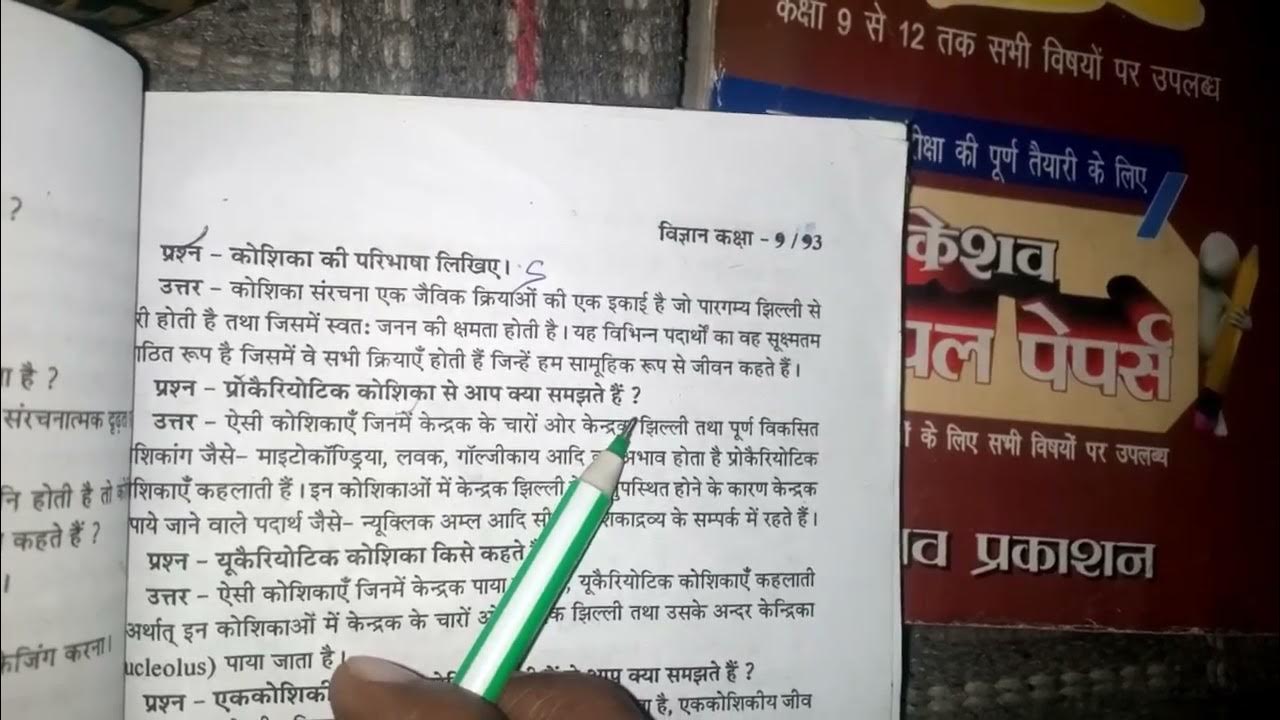 कक्षा 9 से 12 तक सभी विषयों पर उपलब्ध
की पूर्ण तैयारी के लिए
केशव
पेपर्स
के लिए सभी विषयों पर उपलब्ध
प्रकाशन
?
है ?
संरचनात्मक
होती है तो
कहते हैं ?
करना।
विज्ञान कक्षा - 9/93
प्रश्न - कोशिका की परिभाषा लिखिए। S
उत्तर - कोशिका संरचना एक जैविक क्रियाओं की एक इकाई है जो पारगम्य झिल्ली से
री होती है तथा जिसमें स्वतः जनन की क्षमता होती है। यह विभिन्न पदार्थों का वह सूक्ष्मतम
ठित रूप है जिसमें वे सभी क्रियाएँ होती हैं जिन्हें हम सामूहिक रूप से जीवन कहते हैं।
प्रश्न - प्रोकैरियोटिक कोशिका से आप क्या समझते हैं ?
उत्तर - ऐसी कोशिकाएँ जिनमें केन्द्रक के चारों ओर केन्द्रक झिल्ली तथा पूर्ण विकसित
शिकांग जैसे- माइटोकॉण्ड्रिया, लवक, गॉल्जीकाय आदि भाव होता है प्रोकैरियोटिक
शिकाएँ कहलाती हैं। इन कोशिकाओं में केन्द्रक झिल्ली पस्थित होने के कारण केन्द्रक
पाये जाने वाले पदार्थ जैसे- न्यूक्लिक अम्ल आदि शिकाद्रव्य के सम्पर्क में रहते हैं।
प्रश्न - यूकैरियोटिक कोशिका किसे कहते
उत्तर - ऐसी कोशिकाएँ जिनमें केन्द्रक पाया , यूकैरियोटिक कोशिकाएँ कहलाती
अर्थात् इन कोशिकाओं में केन्द्रक के चारों झिल्ली तथा उसके अन्दर केन्द्रिका
ucleolus) पाया जाता है।
प्रश्न - एककोशिकी आप क्या समझते हैं ?
है, एककोशिकीय जीव